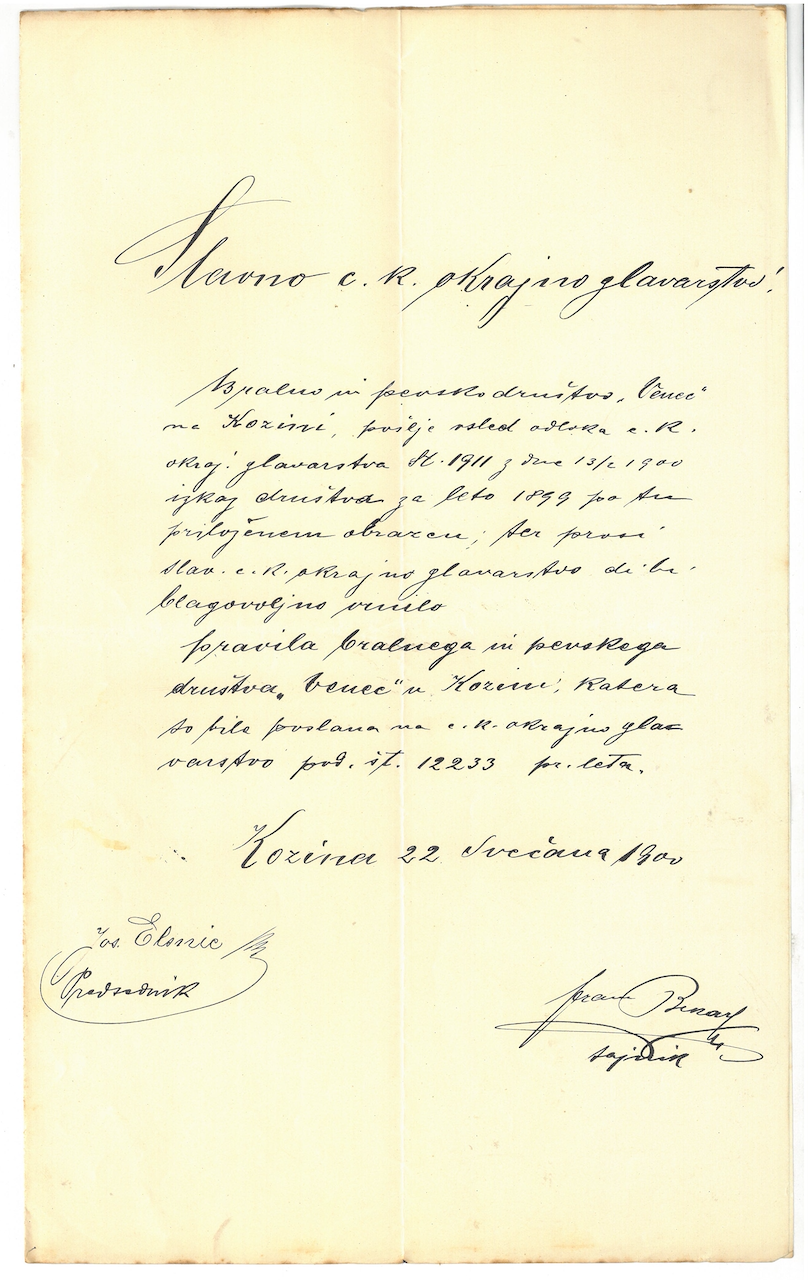 Slavno c. k. okrajno glavarstvo!
Bralno in pevsko društvo „Venec"
na Kozini, pošlje vsled odloka c. k.
okraj. glavarstva št. 1911 z dne 13/2 1900
izkaj društva za leto 1899 po tu
priloženem obrazcu; ter prosi
slav. c. k. okrajno glavarstvo da bi
blagovoljno vrnilo
pravila bralnega in pevskega
društva „Venec" v Kozini, katera
so bila poslana na c. k. okrajno gla-
varstvo pod. št. 12233 pr. leta.
Kozina 22 Svečana 1900
Jos.
Predsednik
Fran
tajnik